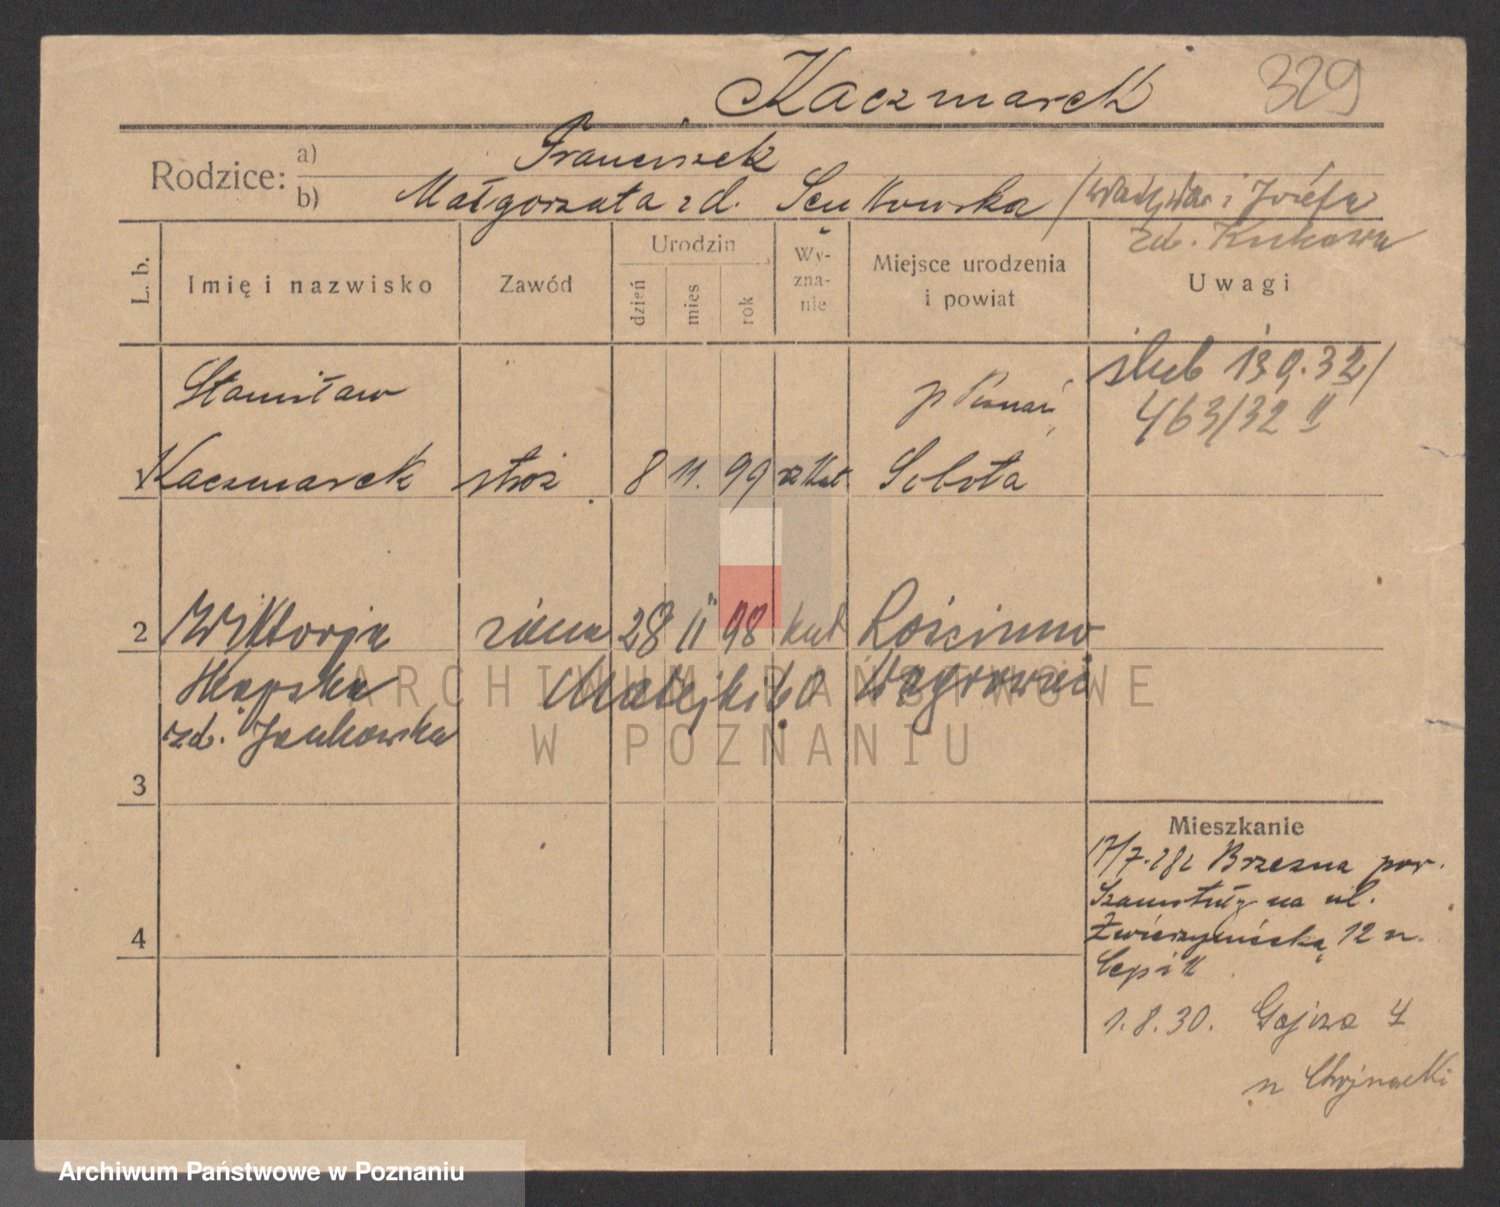 Kaczmarek 329
Rodzice: a) Franciszek
b) Małgorzata zd. Senkowska / Władysław i Józefa
zd.
L. b. Imię i nazwisko Zawód Urodzin dzień mies rok Wy-zna-nie Miejsce urodzenia i powiat Uwagi
Stanisław p Poznań ślub 13 9. 32/
463/32 II
Kaczmarek stróż 8 11. 99 rz Kat Sobota
2 Wiktorja żona 28 II 98 kat Rościnno
zd. Jankowska Matejki 60
3
Mieszkanie
17/7. Brzezna pow.
Szamotuły na ul.
4 Zwierzyniecką 12 n.
1. 8. 30. Gajowa 4
n Chojnacki
ARCHIWUM PAŃSTWOWE
W POZNANIU
Archiwum Państwowe w Poznaniu